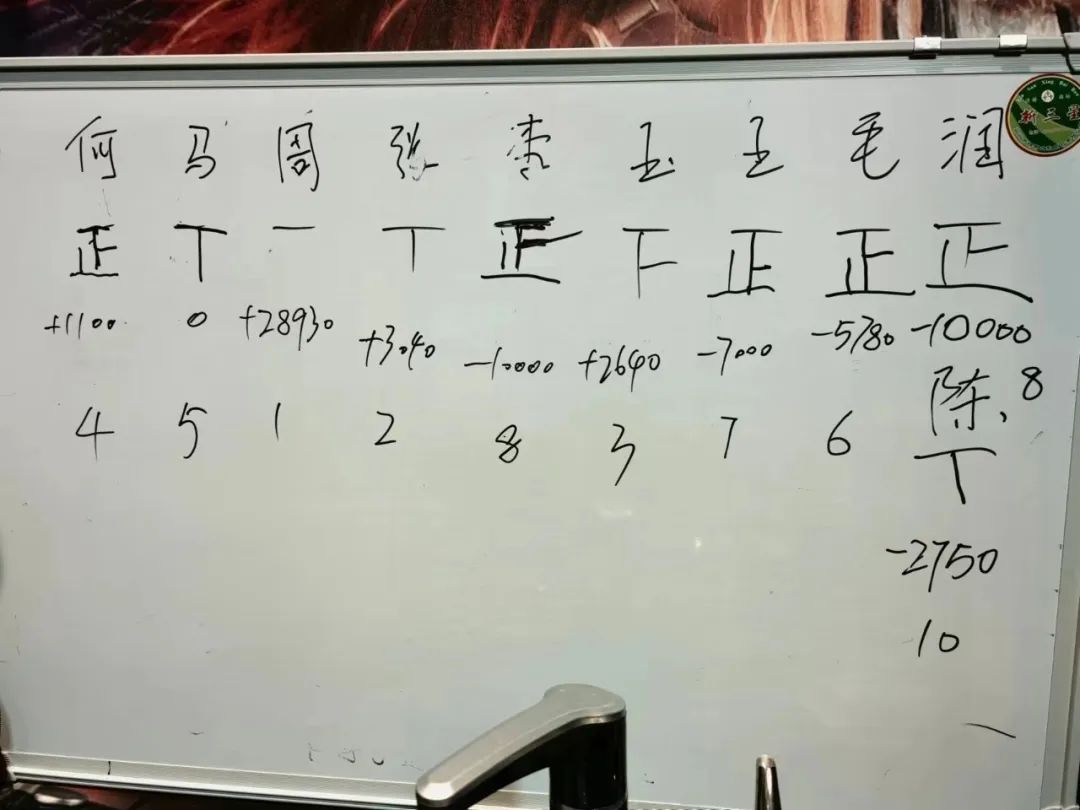 何 马 周 张 枣 玉 王 毛 润
正 丅 一 丅 正 下 正 正 正
+1100 0 +28930 +3040 -10000 +2640 -7000 -5780 -10000
4 5 1 2 8 3 7 6 8
陈
丅
-2750
10
新三星